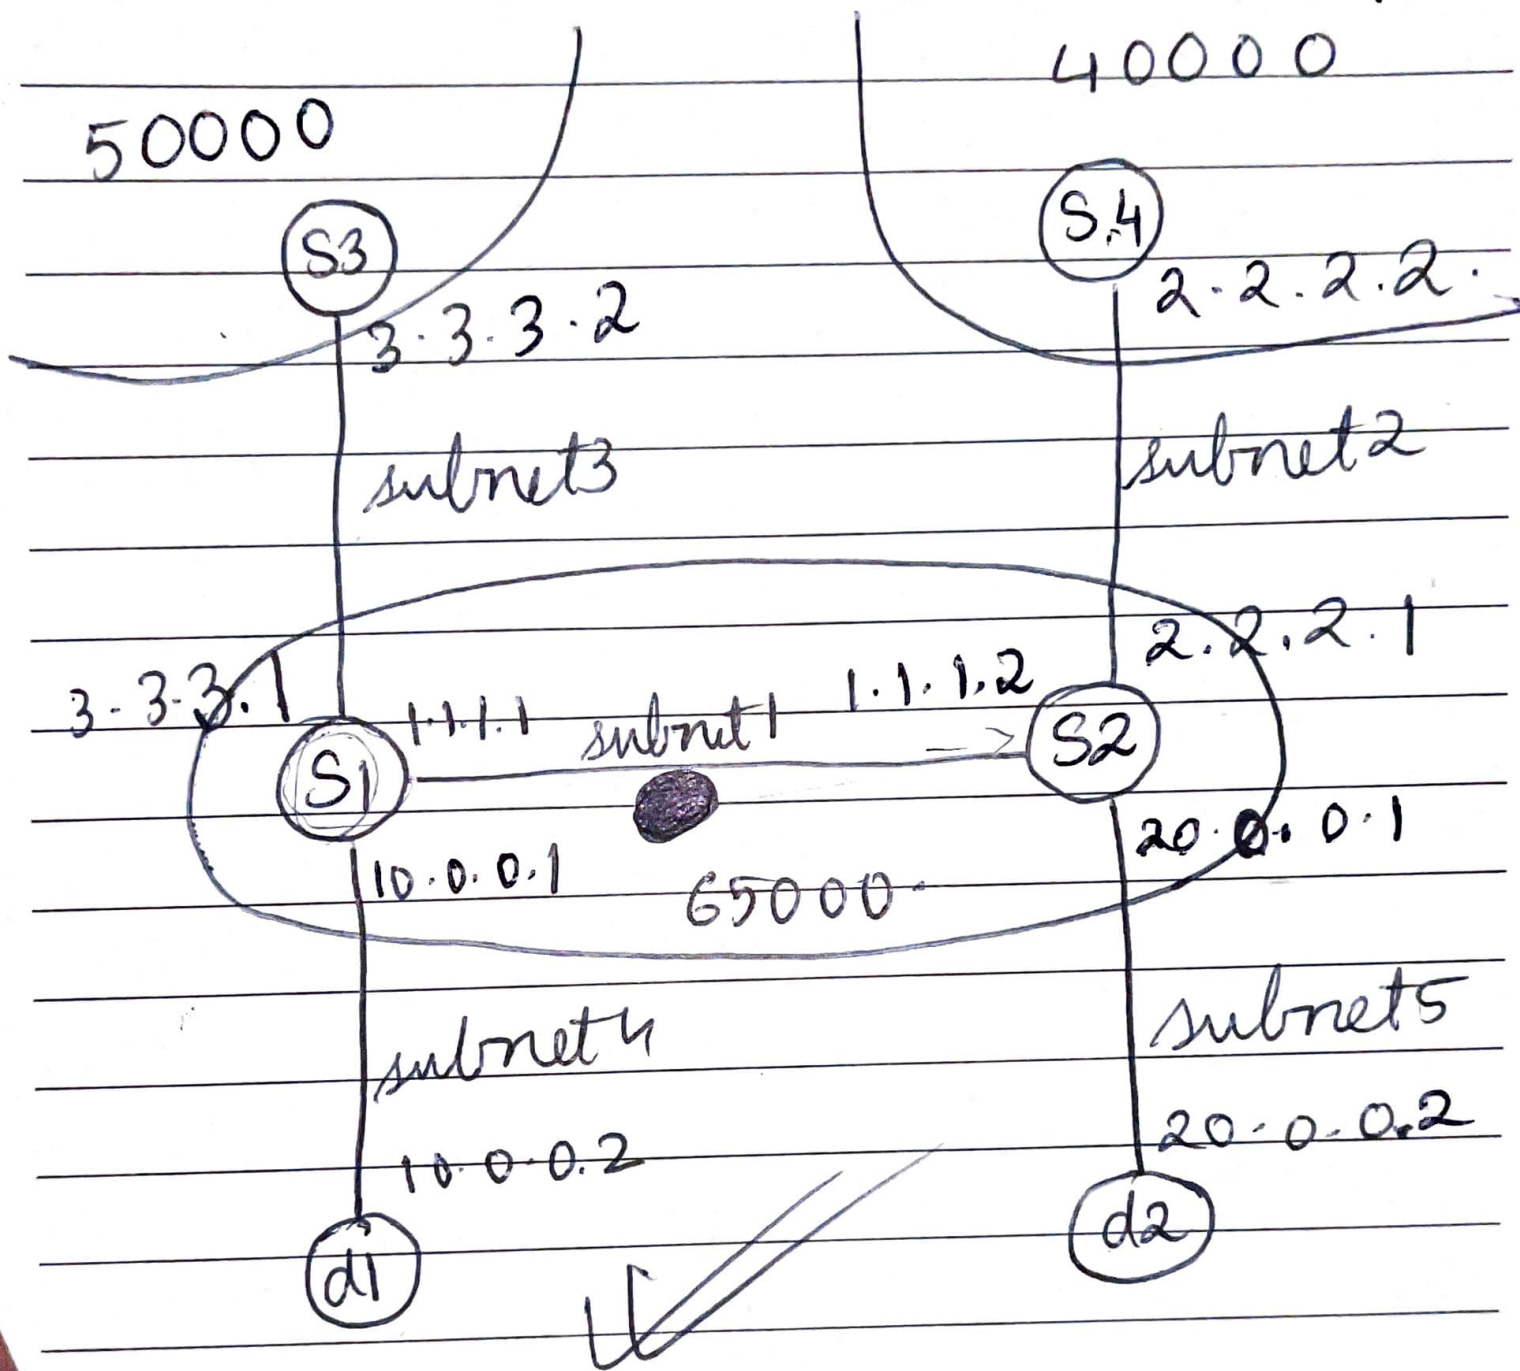 40000
50000
S3
S.4
3.3.3.2
2.2.2.2.
subnet3
subnet2
3.3.3.1
1.1.1.1
subnet1
1.1.1.2
2.2.2.1
S1
S2
10.0.0.1
65000
20.0.0.1
subnet4
subnet5
10.0.0.2
20.0.0.2
d1
d2